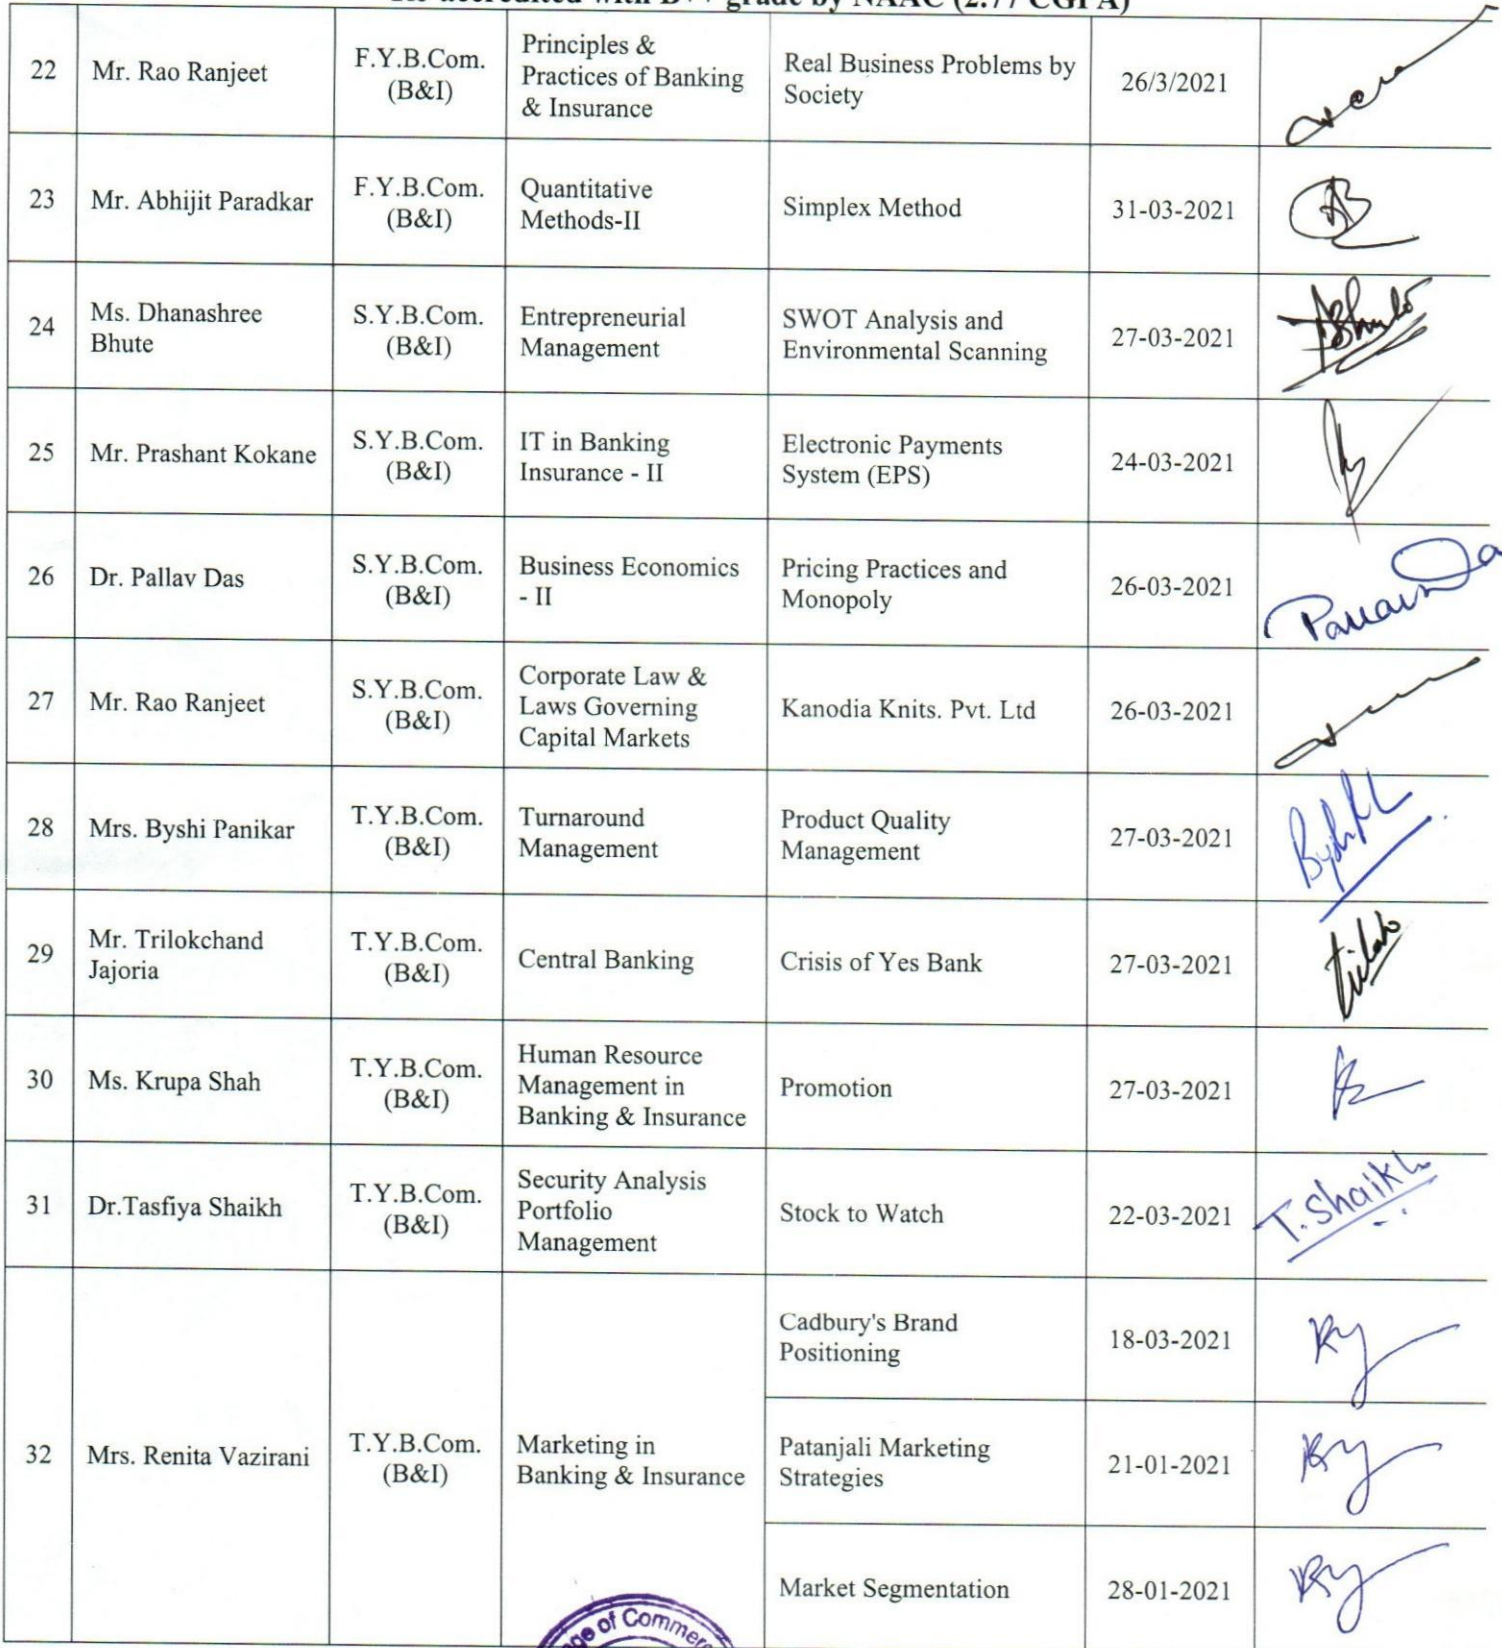 Re-accredited with B++ grade by NAAC (2.77 CGPA)
22 Mr. Rao Ranjeet F.Y.B.Com. (B&I) Principles & Practices of Banking & Insurance Real Business Problems by Society 26/3/2021
23 Mr. Abhijit Paradkar F.Y.B.Com. (B&I) Quantitative Methods-II Simplex Method 31-03-2021
24 Ms. Dhanashree Bhute S.Y.B.Com. (B&I) Entrepreneurial Management SWOT Analysis and Environmental Scanning 27-03-2021
25 Mr. Prashant Kokane S.Y.B.Com. (B&I) IT in Banking Insurance - II Electronic Payments System (EPS) 24-03-2021
26 Dr. Pallav Das S.Y.B.Com. (B&I) Business Economics - II Pricing Practices and Monopoly 26-03-2021
27 Mr. Rao Ranjeet S.Y.B.Com. (B&I) Corporate Law & Laws Governing Capital Markets Kanodia Knits. Pvt. Ltd 26-03-2021
28 Mrs. Byshi Panikar T.Y.B.Com. (B&I) Turnaround Management Product Quality Management 27-03-2021
29 Mr. Trilokchand Jajoria T.Y.B.Com. (B&I) Central Banking Crisis of Yes Bank 27-03-2021
30 Ms. Krupa Shah T.Y.B.Com. (B&I) Human Resource Management in Banking & Insurance Promotion 27-03-2021
31 Dr.Tasfiya Shaikh T.Y.B.Com. (B&I) Security Analysis Portfolio Management Stock to Watch 22-03-2021 T. Shaikh
32 Mrs. Renita Vazirani T.Y.B.Com. (B&I) Marketing in Banking & Insurance Cadbury's Brand Positioning 18-03-2021
Patanjali Marketing Strategies 21-01-2021
Market Segmentation 28-01-2021
of Commer